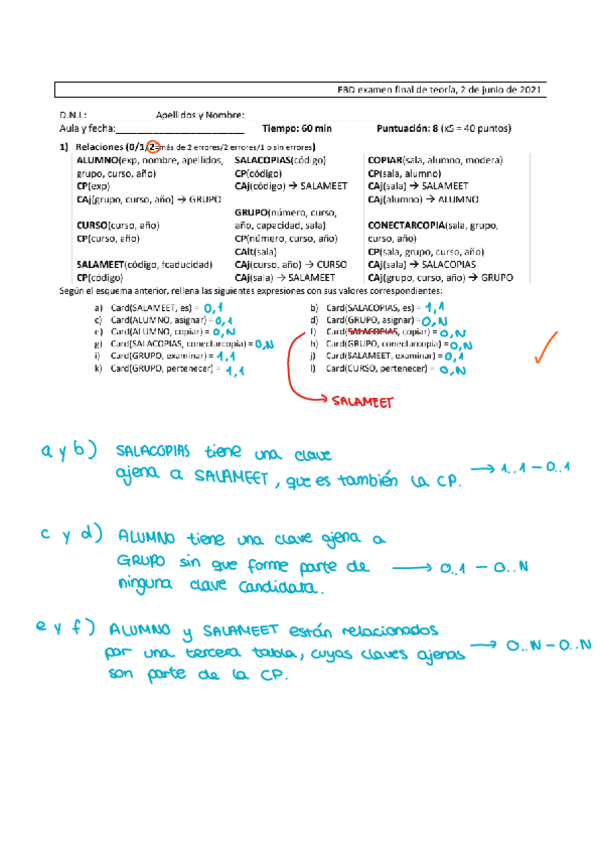 FBD examen final de teoría, 2 de junio de 2021
D.N.I.: Apellidos y Nombre:
Aula y fecha: Tiempo: 60 min Puntuación: 8 (x5 = 40 puntos)
1) Relaciones (0/1/2=más de 2 errores/2 errores/1 o sin errores)
ALUMNO(exp, nombre, apellidos,
grupo, curso, año)
CP(exp)
CAj(grupo, curso, año) → GRUPO
CURSO(curso, año)
CP(curso, año)
SALAMEET(código, fcaducidad)
CP(código)
SALACOPIAS(código)
CP(código)
CAj(código) → SALAMEET
GRUPO(número, curso,
año, capacidad, sala)
CP(número, curso, año)
CAlt(sala)
CAj(curso, año) → CURSO
CAj(sala) → SALAMEET
COPIAR(sala, alumno, modera)
CP(sala, alumno)
CAj(sala) → SALAMEET
CAj(alumno) → ALUMNO
CONECTARCOPIA(sala, grupo,
curso, año)
CP(sala, grupo, curso, año)
CAj(sala) → SALACOPIAS
CAj(grupo, curso, año) → GRUPO
Según el esquema anterior, rellena las siguientes expresiones con sus valores correspondientes:
a) Card(SALAMEET, es) = 0,1 b) Card(SALACOPIAS, es) = 1,1
c) Card(ALUMNO, asignar) = 0,1 d) Card(GRUPO, asignar) = 0,N
e) Card(ALUMNO, copiar) = 0,N f) Card(SALACOPIAS, copiar) = 0,N
g) Card(SALACOPIAS, conectarcopia) = 0,N h) Card(GRUPO, conectarcopia) = 0,N
i) Card(GRUPO, examinar) = 1,1 j) Card(SALAMEET, examinar) = 0,1
k) Card(GRUPO, pertenecer) = 1,1 l) Card(CURSO, pertenecer) = 0,N
→ SALAMEET
a y b) SALACOPIAS tiene una clave
ajena a SALAMEET, que es también la CP. → 1..1 - 0..1
c y d) ALUMNO tiene una clave ajena a
GRUPO sin que forme parte de → 0..1 - 0..N
ninguna clave candidata.
e y f) ALUMNO y SALAMEET están relacionados
por una tercera tabla, cuyas claves ajenas → 0..N - 0..N
son parte de la CP.